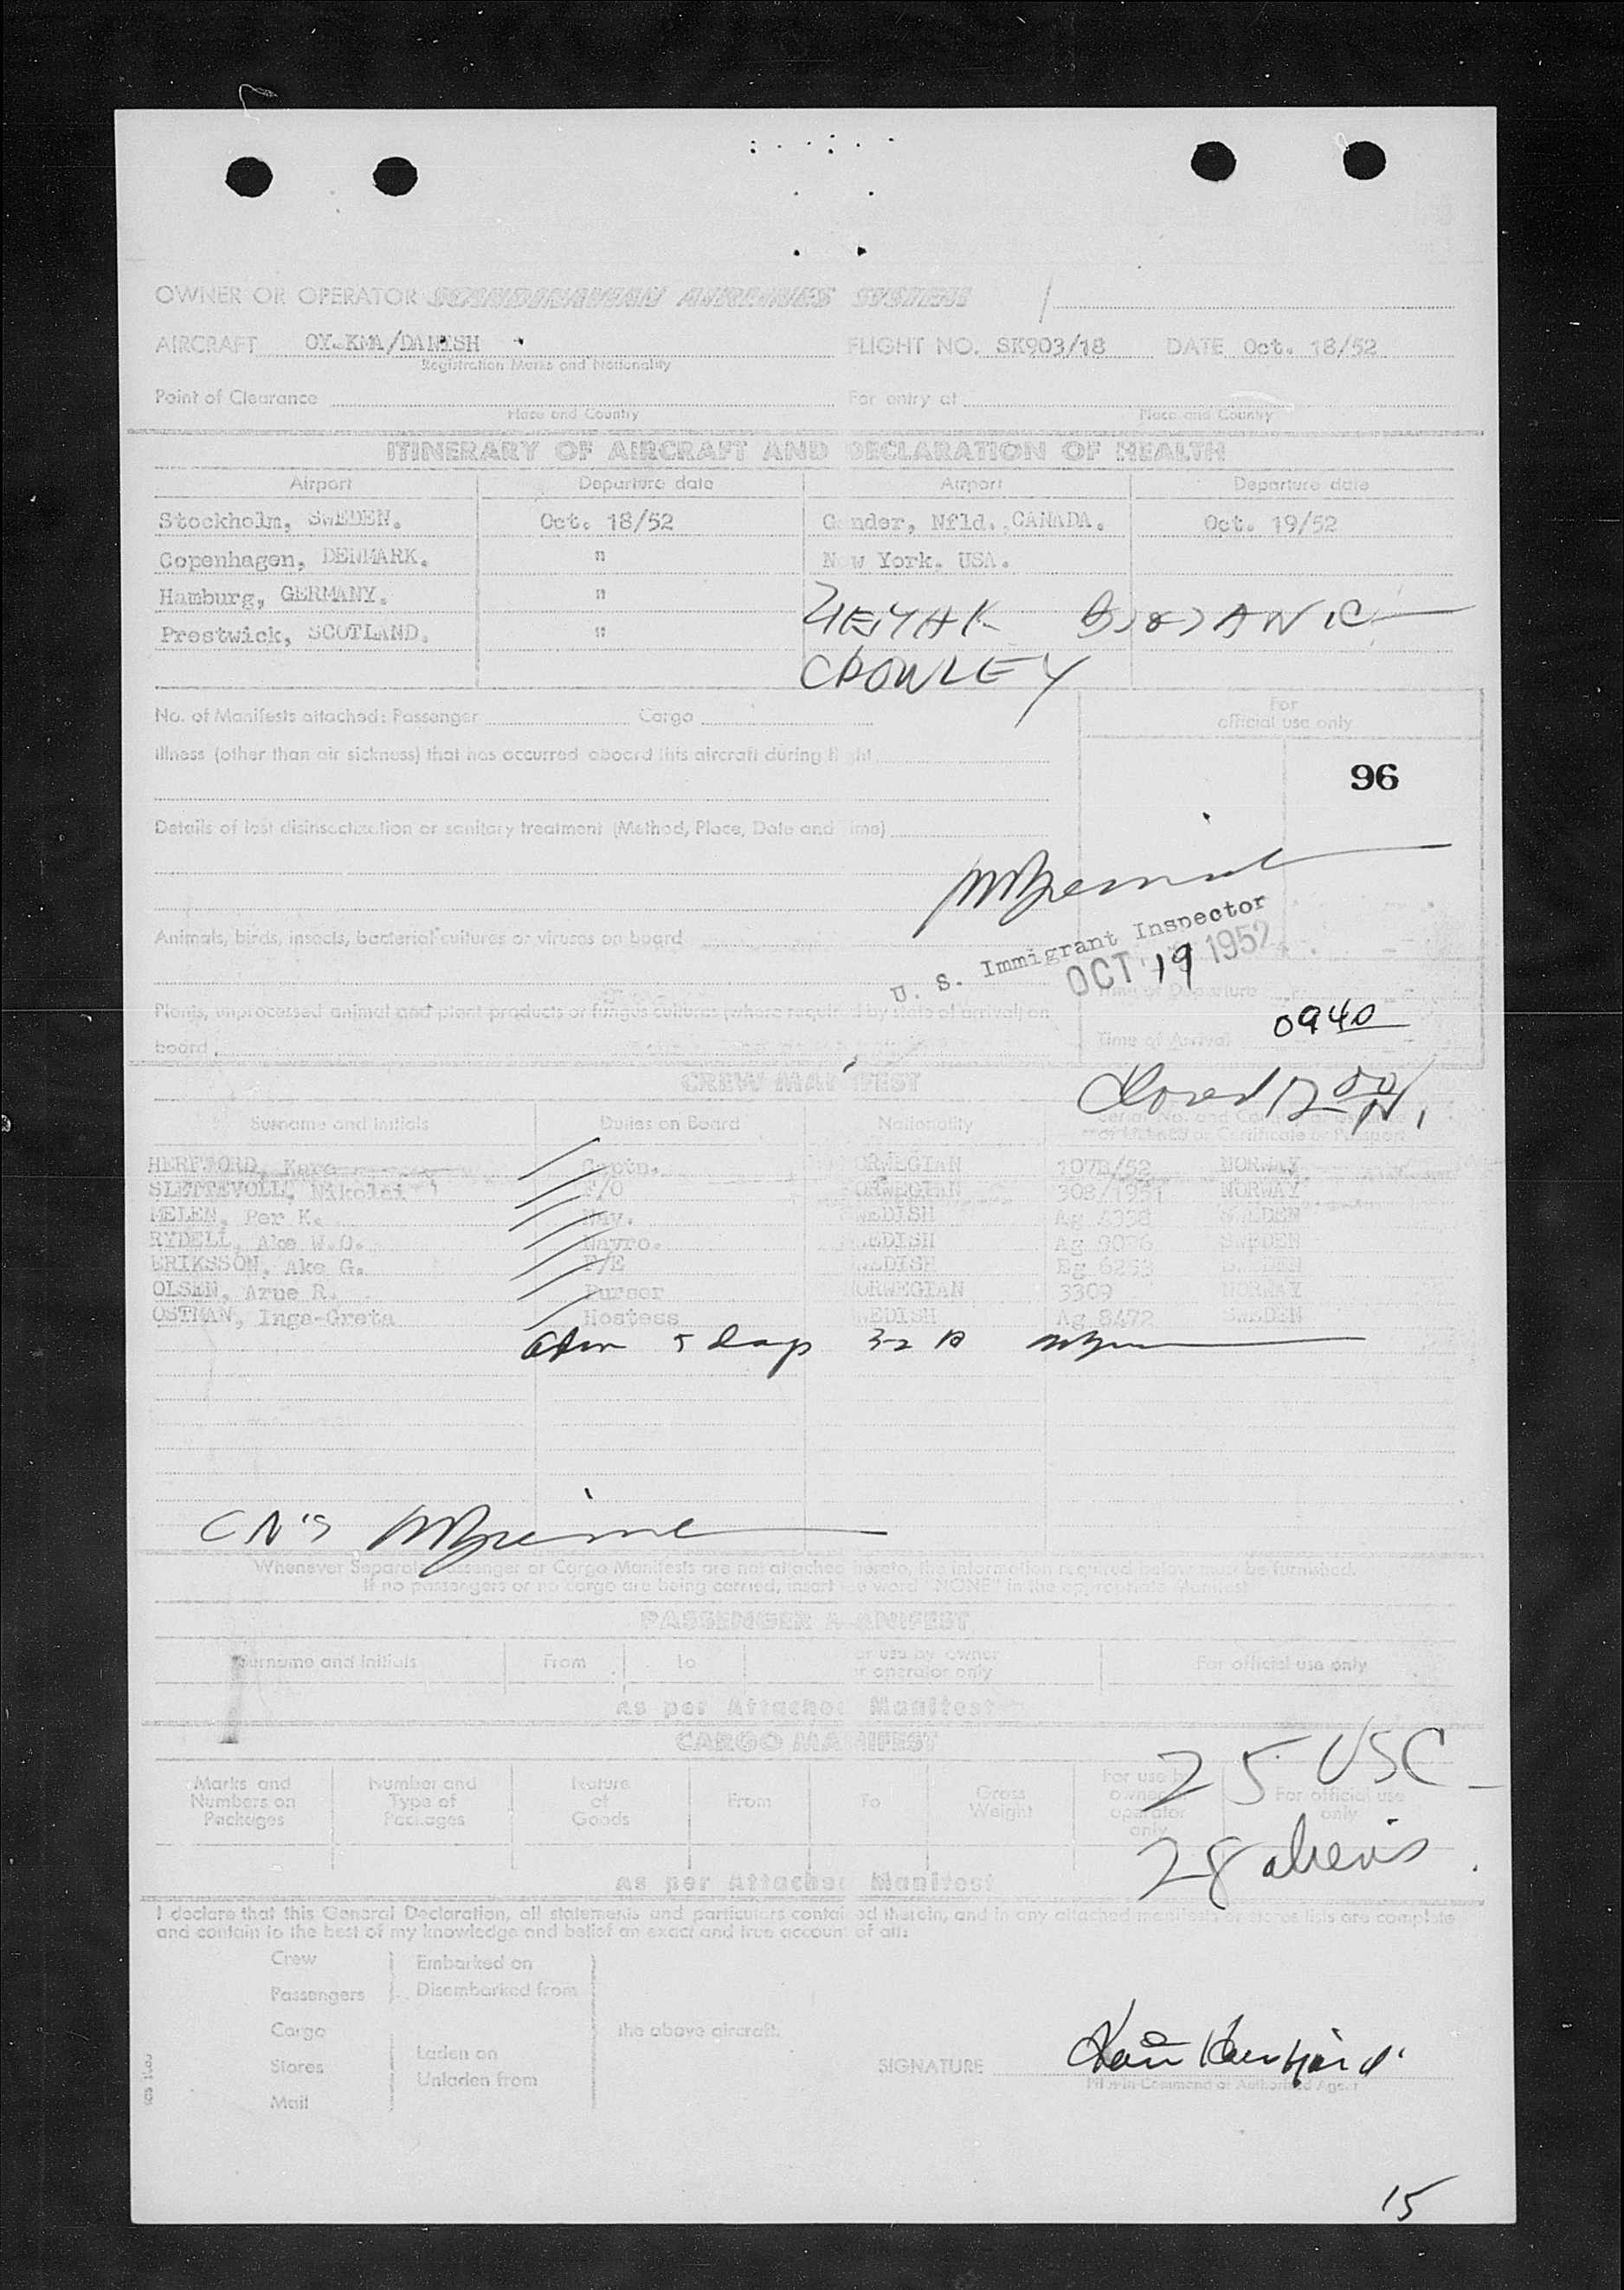 OWNER OR OPERATOR SCANDINAVIAN AIRLINES SYSTEM
AIRCRAFT OY.KMA/DANISH FLIGHT NO. SK903/18 DATE Oct. 18/52
Registration Marks and Nationality
Point of Clearance For entry at
Place and Country Place and Country
ITINERARY OF AIRCRAFT AND DECLARATION OF HEALTH
Airport Departure date Airport Departure date
Stockholm, SWEDEN. Oct. 18/52 Gander, Nfld., CANADA. Oct. 19/52
Copenhagen, DENMARK. " New York. USA.
Hamburg, GERMANY. "
Prestwick, SCOTLAND. "
CROWLEY
No. of Manifests attached: Passenger Cargo
For
official use only
Illness (other than air sickness) that has occurred aboard this aircraft during flight
96
Details of last disinsectization or sanitary treatment (Method, Place, Date and Time)
Animals, birds, insects, bacterial cultures or viruses on board
U. S. Immigrant Inspector
OCT 19 1952
Time of Departure
Plants, unprocessed animal and plant products or fungus cultures (where required by state of arrival) on
board
Time of Arrival 0940
CREW MANIFEST
Closed 12 00 N.
Surname and Initials Duties on Board Nationality
of License or Certificate or Passport
HERFJORD, Kare Captn. NORWEGIAN 107B/52 NORWAY
SLETTEVOLL, Nikolai F/O NORWEGIAN 303/1951 NORWAY
MELEN, Per K. Nav. SWEDISH Ag 4338 SWEDEN
RYDELL, Ake W.O. Navro. SWEDISH Ag 9096 SWEDEN
ERIKSSON, Ake G. F/E SWEDISH Eg 6253 SWEDEN
OLSEN, Arue R. Purser NORWEGIAN 3309 NORWAY
OSTMAN, Inga-Greta Hostess SWEDISH Ag 8472 SWEDEN
Adm 5 days
CN's
Whenever Separate Passenger or Cargo Manifests are not attached hereto, the information required below must be furnished.
If no passengers or no cargo are being carried, insert the word "NONE" in the appropriate Manifest
PASSENGER MANIFEST
Surname and Initials From To For use by owner
or operator only For official use only
As per Attached Manifest
CARGO MANIFEST
25 USC
Marks and
Numbers on
Packages
Number and
Type of
Packages
Nature
of
Goods
From To
Gross
Weight
For use by
owner or
operator
only
For official use
only
28 aliens
As per Attached Manifest
I declare that this General Declaration, all statements and particulars contained therein, and in any attached manifests or stores lists are complete
and contain to the best of my knowledge and belief an exact and true account of all:
Crew Embarked on
Passengers Disembarked from
Cargo the above aircraft.
Laden on
Stores
Unladen from
Mail
SIGNATURE
Pilot-in-Command or Authorized Agent
15